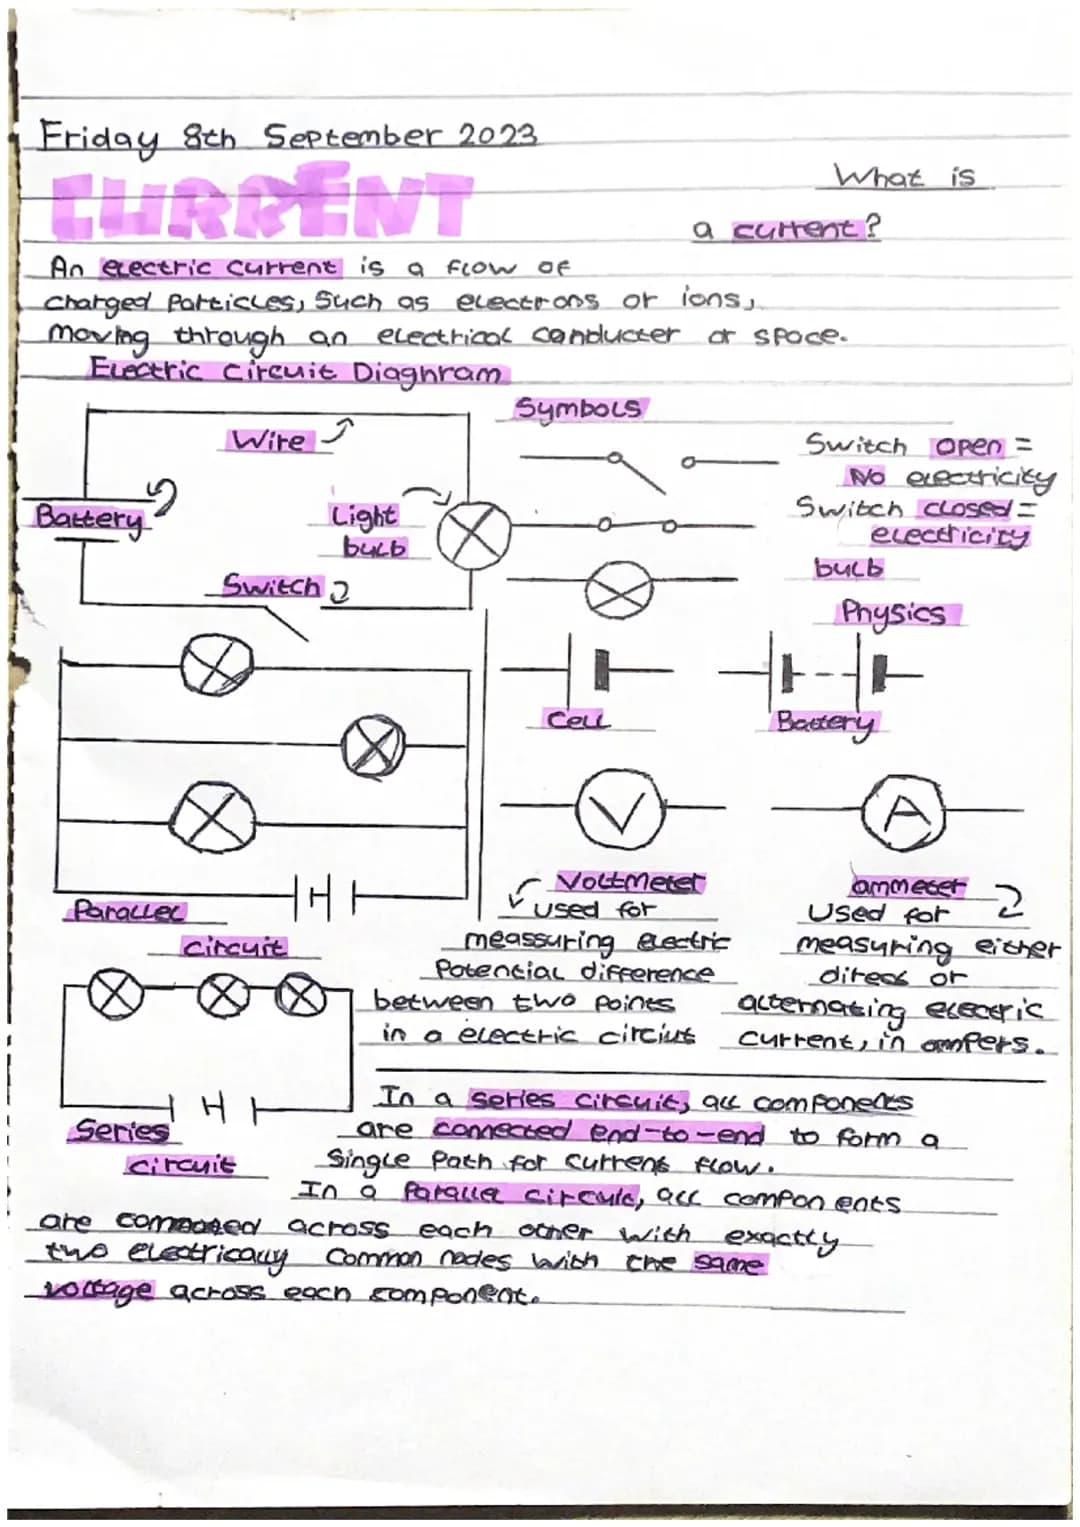 Friday 8th September 2023
CURRENT
What is
a current?
An electric current is a flow of
charged particles, such as electrons or ions,
moving through an electrical conducter or space.
Electric Circuit Diaghram
Symbols
Wire
Battery
Light
bulb
Switch
Switch open =
No electricity
Switch closed =
electricity
bulb
Physics
Cell
Battery
V
A
Voltmeter
used for
meassuring electric
Potential difference
between two points
in a electric circiut
ammeter
Used for
measuring either
direct or
alternating electric
current, in ampers.
Parallel
circuit
Series
circuit
In a series circuit, all components
are connected end-to-end to form a
Single Path for current flow.
In a Parallel circuit, all components
are connected across each other with exactly
two electrically common nodes with the same
voltage across each component.